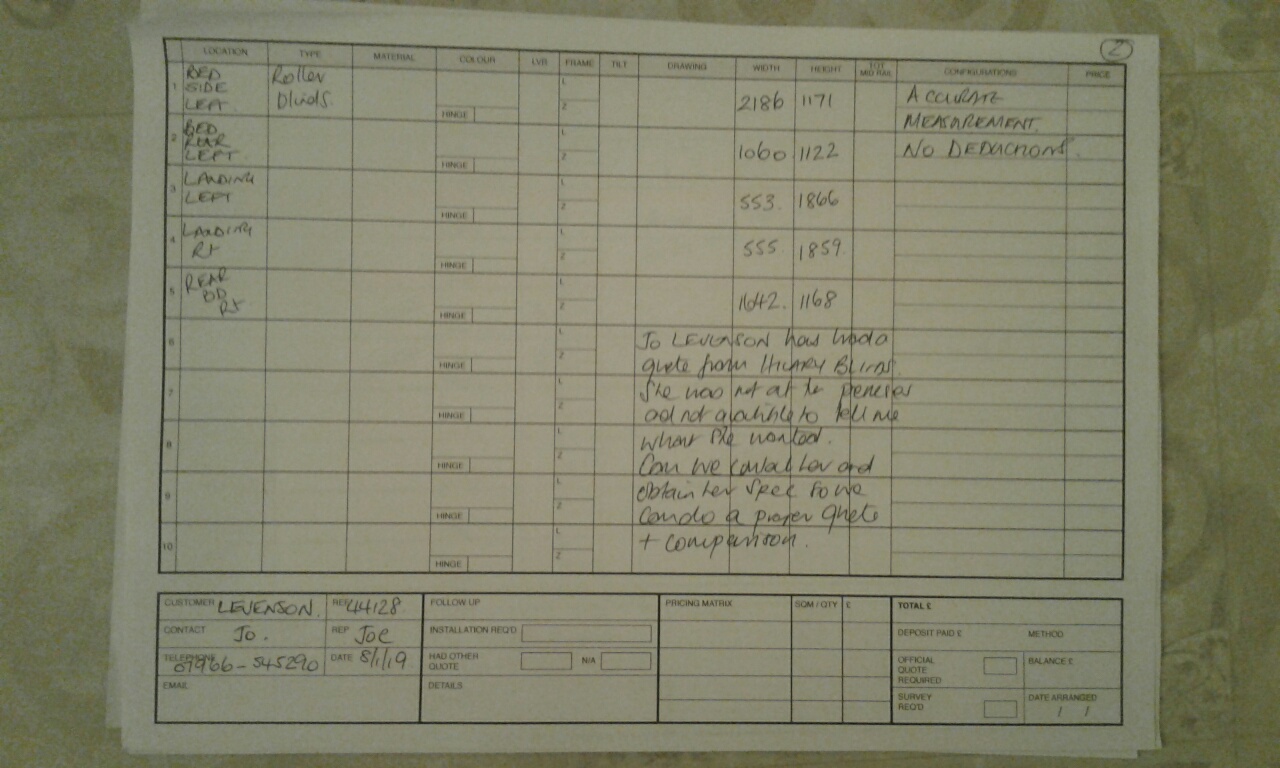 2
LOCATION TYPE MATERIAL COLOUR LVR FRAME TILT DRAWING WIDTH HEIGHT TOT MID RAIL CONFIGURATIONS PRICE
1 BED SIDE LEFT Roller blinds HINGE L Z 2186 1171 ACCURATE MEASUREMENT
2 BED REAR LEFT HINGE L Z 1060 1122 NO DEDUCTIONS.
3 LANDING LEFT HINGE L Z 553. 1866
4 LANDING Rt HINGE L Z 555. 1859.
5 REAR BD Rt HINGE L Z 1642. 1168
6 HINGE L Z
JO LEVENSON has had a
quote from HILARY BLINDS.
7 HINGE L Z
She was not at the
and not available to tell me
8 HINGE L Z
what she wanted.
Can we contact her and
9 HINGE L Z
obtain her spec so we
can do a proper quote
10 HINGE L Z
+ comparison.
CUSTOMER LEVENSON. REF 44128.
CONTACT Jo. REP Joe
TELEPHONE 07966-545290 DATE 8/1/19
EMAIL
FOLLOW UP
INSTALLATION REQ'D
HAD OTHER QUOTE N/A
DETAILS
PRICING MATRIX SQM / QTY £
TOTAL £
DEPOSIT PAID £ METHOD
OFFICIAL QUOTE REQUIRED BALANCE £
SURVEY REQ'D DATE ARRANGED
/ /